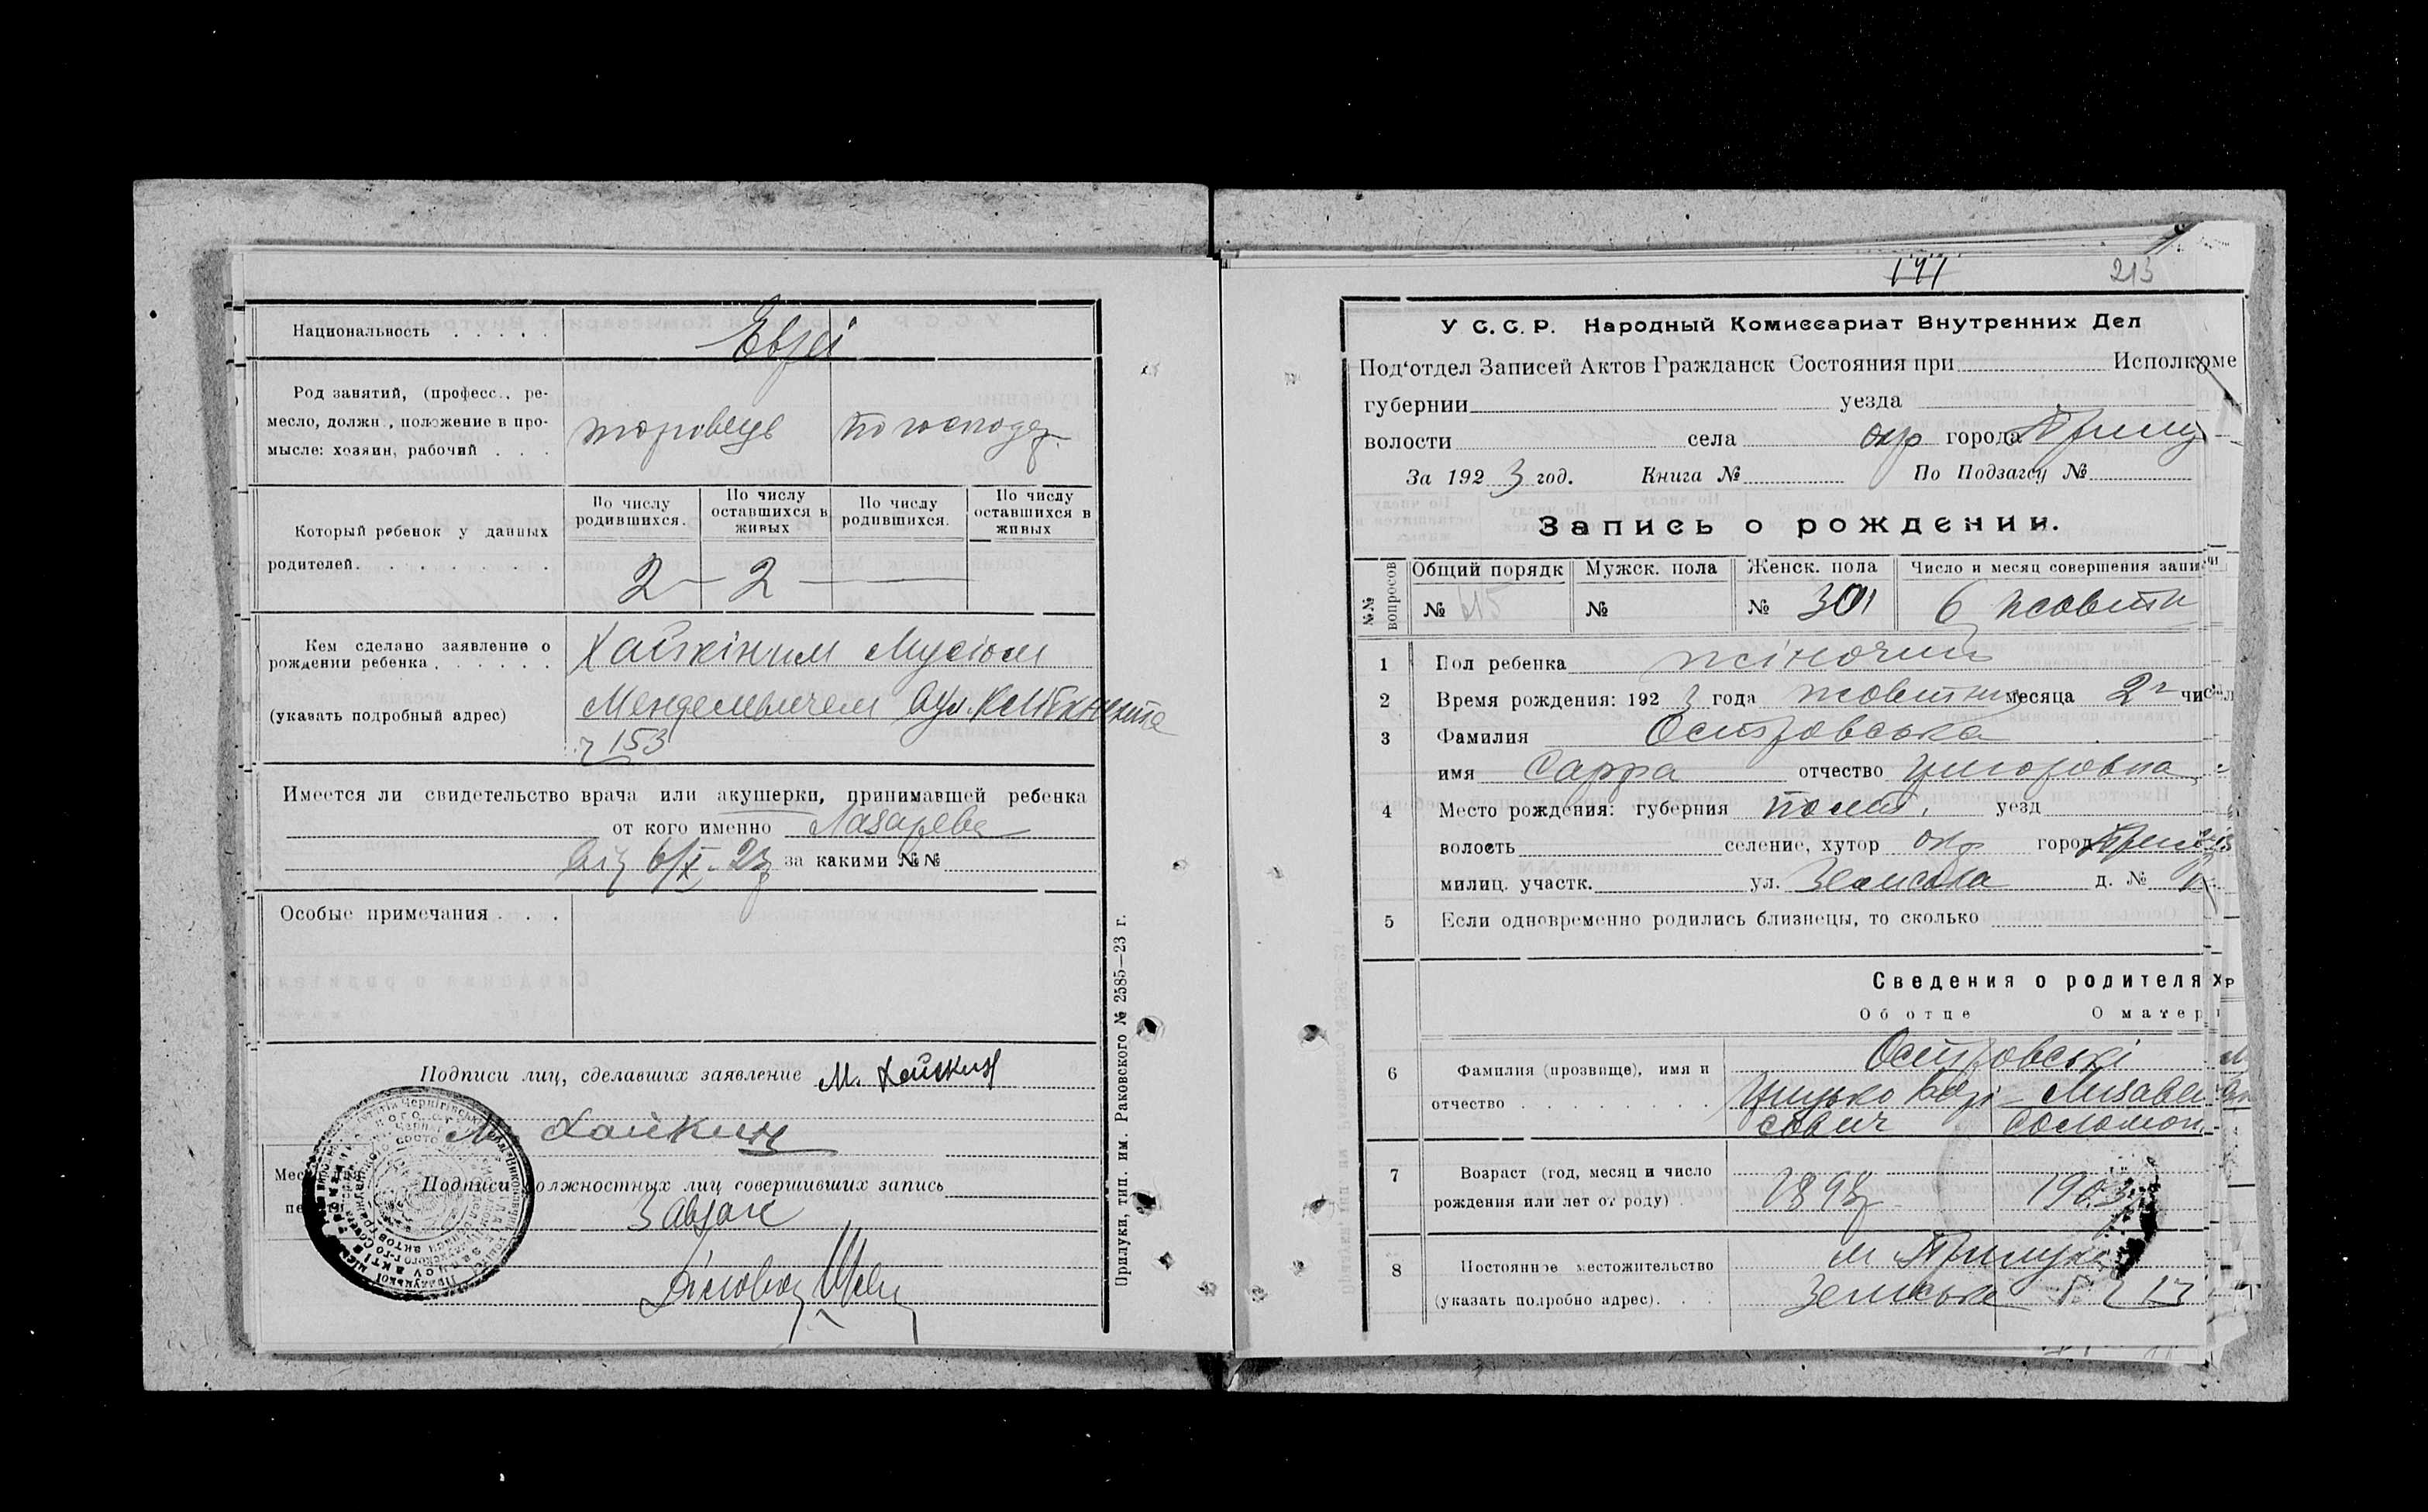 Национальность . . . . .
Евреї
Род занятий, (професс., ре-
месло, должн , положение в про-
мысле: хозяин, рабочий . . .
торговець
по господ.
Который ребенок у данных
родителей. . . . . . . .
По числу
родившихся.
По числу
оставшихся в
живых
По числу
родившихся.
По числу
оставшихся в
живых
2 — 2 —
Кем сделано заявление о
рождении ребенка . . . . . .
(указать подробный адрес)
Хайкіним Мусіом
Менделевичем вул. К. Лібкнехта
153
Имеется ли свидетельство врача или акушерки, принимавшей ребенка
от кого именно Лазарева
від 6/X - 23 за какими №№
Особые примечания . . .
Подписи лиц, сделавших заявление М. Хайкин
М. Хайкин
Подписи должностных лиц совершивших запись
Завзаг
Діловод
Прилуки, тип. им. Раковского № 2585—23 г.
177 213
У С. С. Р. Народный Комиссариат Внутренних Дел
Под‘отдел Записей Актов Гражданск Состояния при Исполкоме
губернии уезда
волости села окр города Прилу
За 192 3 год. Книга № По Подзагсу №
Запись о рождении.
№№ вопросов
Общий порядк
Мужск. пола
Женск. пола
Число и месяц совершения записи
№ 615
№
№ 301
6 жовтн
1 Пол ребенка жіночий
2 Время рождения: 192 3 года жовтня месяца 2 числ
3 Фамилия Островська
имя Сарра отчество Григоровна
4 Место рождения: губерния полт. уезд
волость селение, хутор окр город
милиц. участк. ул. Земська д. №
5 Если одновременно родились близнецы, то сколько
Сведения о родителях
Об отце О матер
6 Фамилия (прозвище), имя и
отчество . . . . . . . .
Островські
Грицько Бори
сович
Лизаве
Соломон.
7 Возраст (год, месяц и число
рождения или лет от роду) .
1898
1903
8 Постоянное местожительство
(указать подробно адрес). . .
м Прилуки
Земська